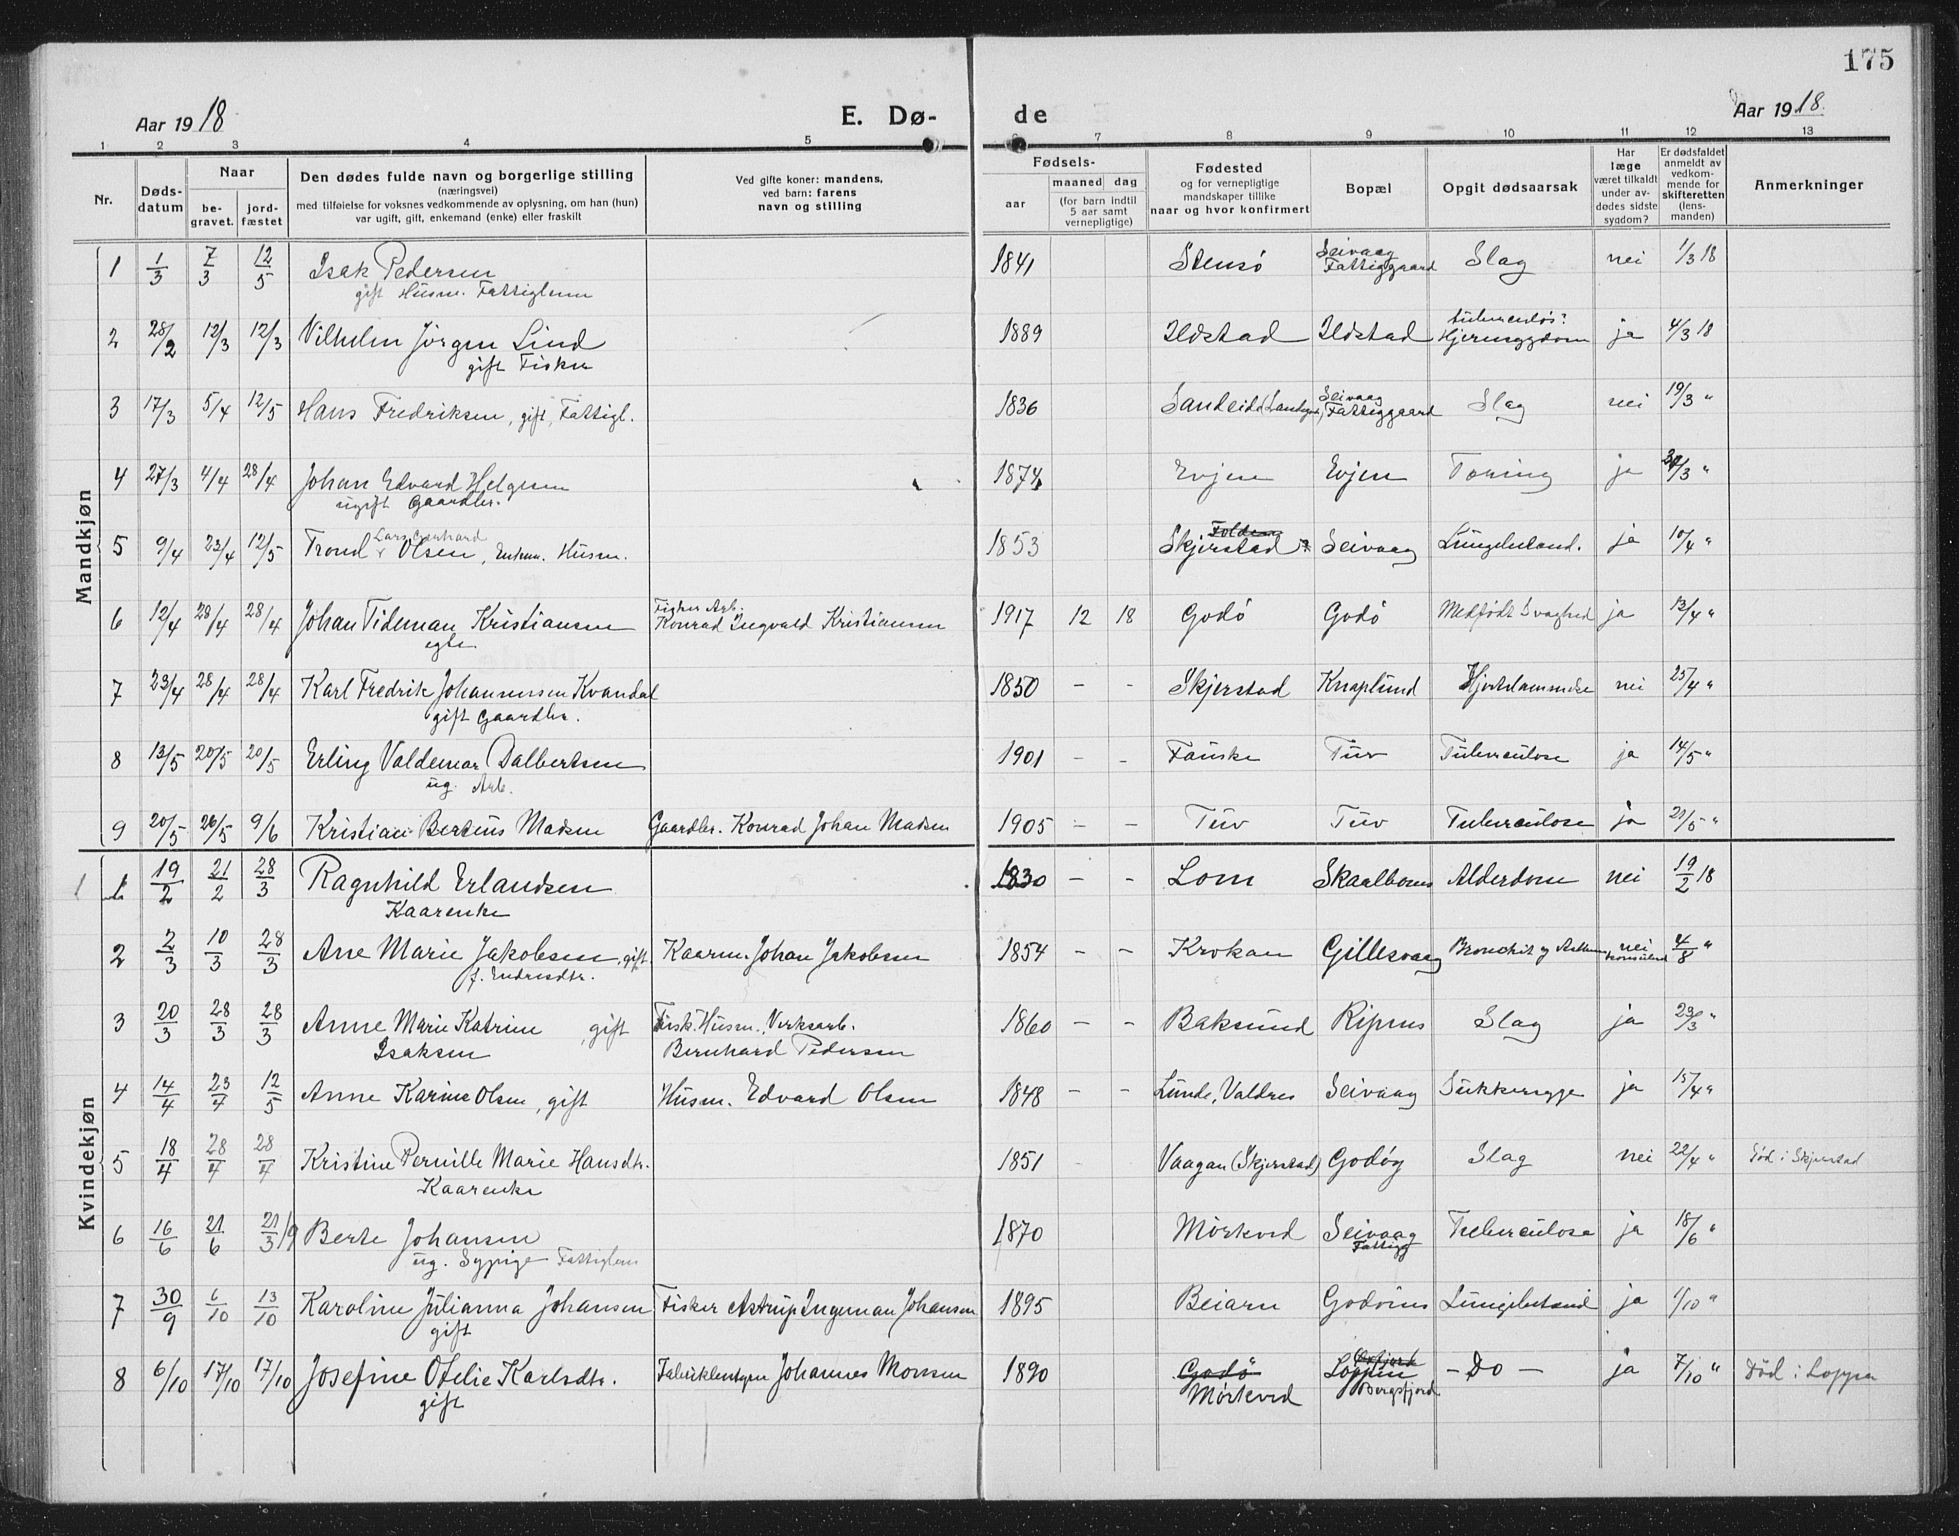 175
Aar 1918 E. Dø- de Aar 1918.
1 2 3 4 5 6 7 8 9 10 11 12 13
Nr. Døds-datum Naar be-gravet. jord-fæstet Den dødes fulde navn og borgerlige stilling (næringsvei) med tilføielse for voksnes vedkommende av oplysning, om han (hun) var ugift, gift, enkemand (enke) eller fraskilt Ved gifte koner: mandens, ved barn: farens navn og stilling Fødsels- aar maaned dag (for barn indtil 5 aar samt vernepligtige) Fødested og for vernepligtige mandskaper tillike naar og hvor konfirmert Bopæl Opgit dødsaarsak Har læge været tilkaldt under av-dødes sidste sygdom? Er dødsfaldet anmeldt av vedkom-mende for skifteretten (lens-manden) Anmerkninger
Mandkjøn
1 1/3 7/3 12/5 Isak Pedersen 1841 Stensø Seivaag Fattiggaard Slag nei 1/3 18
gift Husm. Fattiglem
2 28/2 12/3 12/3 Vilhelm Jørgen Lind 1889 Ildstad Ildstad tuberculøs? Hjernesygdom ja 4/3 18
gift Fisker
3 17/3 5/4 12/5 Hans Fredriksen, gift, Fattigl. 1836 Sandeid Seivaag Fattiggaard Slag nei 19/3 "
4 27/3 4/4 28/4 Johan Edvard Helgesen 1874 Evjen Evjen Tæring ja /3 "
ugift Gaardbr.
5 9/4 23/4 12/5 Trond Lars Gerhard Olsen, Enkem. Husm. 1853 Skjerstad Seivaag Lungebetænd. ja 10/4 "
6 12/4 28/4 28/4 Johan Tideman Kristiansen Fisker Arb. Konrad Ingvald Kristiansen 1917 12 18 Godø Godø Medfødt Svaghed ja 13/4 "
egte
7 23/4 28/4 28/4 Karl Fredrik Johannessen Kvandal 1850 - - Skjerstad Knaplund Hjertelammelse nei 25/4 "
gift Gaardbr.
8 13/5 20/5 20/5 Erling Valdemar Dalbertsen 1901 - - Fauske Tuv Tuberculose ja 14/5 "
ug. Arb.
9 20/5 26/5 9/6 Kristian Berteus Madsen Gaardbr. Konrad Johan Madsen 1905 - - Tuv Tuv Tuberculose ja 21/5 "
Kvindekjøn
1 1 19/2 21/2 28/3 Ragnhild Erlandsen 1830 - - Lom Skaalbones Alderdom nei 19/2 18
Kaarenke
2 2/3 10/3 28/3 Ane Marie Jakobsen, gift Kaarm. Johan Jakobsen 1854 - - Krokan Gillesvaag Bronchit og Asthma nei 4/8 "
f. Endresdtr.
3 20/3 28/3 28/3 Anne Marie Katrine, gift Fisk. Husm. Verksarb. 1860 - - Baksund Ripnes Slag ja 23/3 "
Isaksen Bernhard Pedersen
4 14/4 23/4 12/5 Anne Karine Olsen, gift Husm. Edvard Olsen 1848 - - Lunde, Valdres Seivaag Sukkersyge ja 15/4 "
5 18/4 28/4 28/4 Kristine Pernille Marie Hansdtr. 1851 - - Vaagan (Skjerstad) Godøy Slag nei 22/4 " Død i Skjerstad
Kaarenke
6 16/6 21/6 21/3 19 Berte Johansen 1870 Mørkved Seivaag Fattigg Tuberculose ja 18/6 "
ug. Sypige Fattiglem
7 30/9 6/10 13/10 Karoline Julianna Johansen Fisker Astrup Ingeman Johansen 1895 Beiarn Godønes Lungebetænd ja 1/10 "
gift
8 6/10 17/10 17/10 Josefine Otelie Karlsdtr. Fabrikbestyrer Johannes Monsen 1890 Godø Loppen - Do - ja 7/10 " Død i Loppen
gift Mørkved Bergsfjord